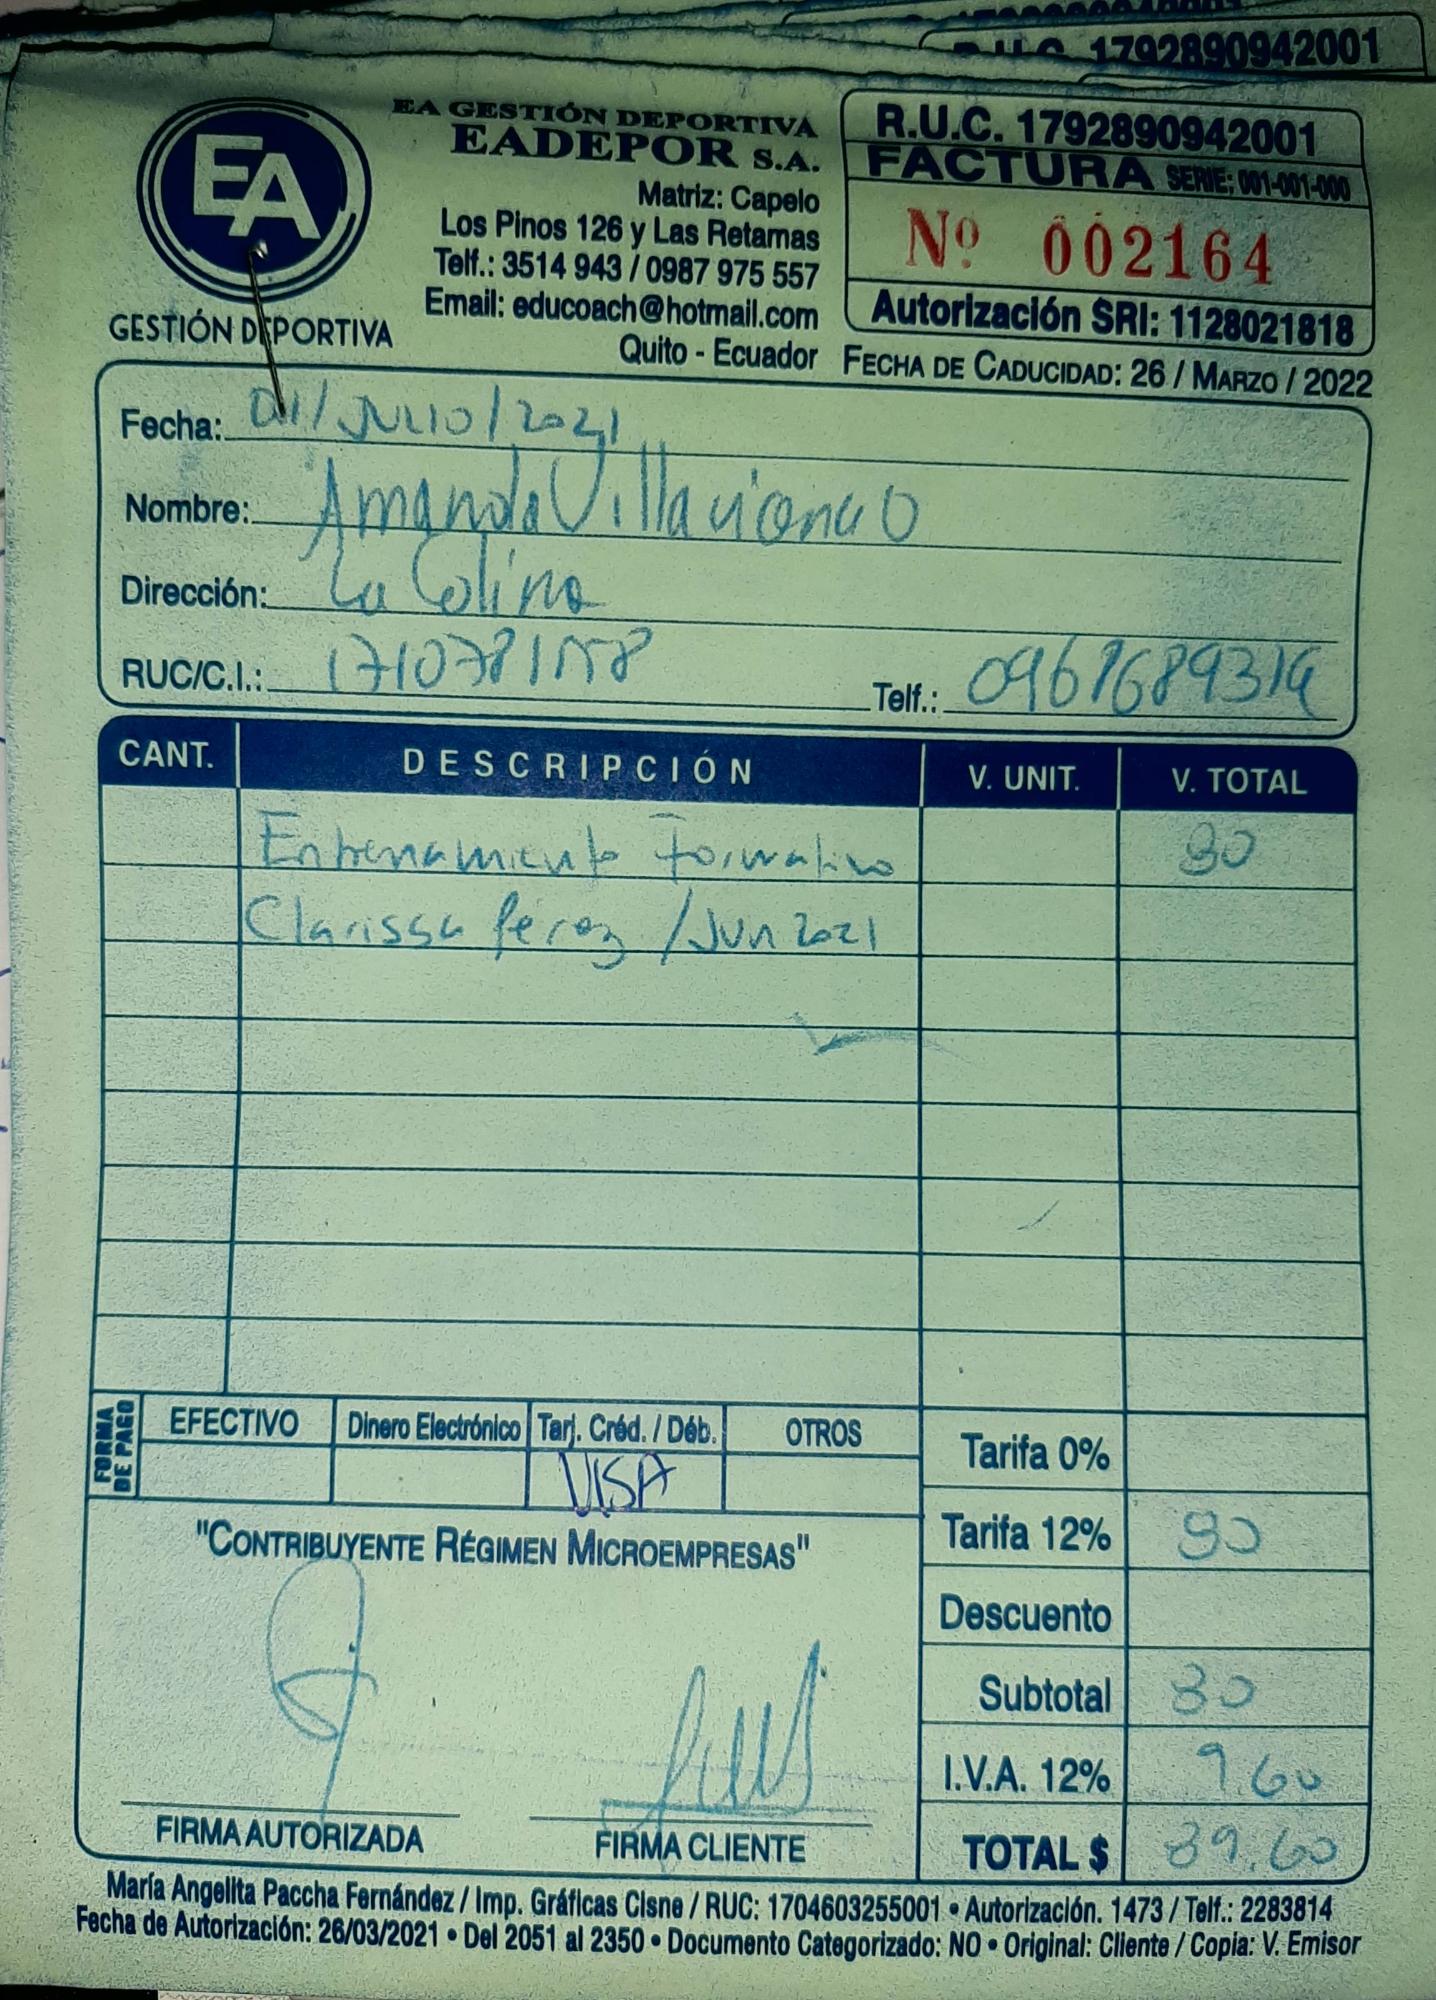 R.U.C. 1792890942001
EA
GESTIÓN DEPORTIVA
EA GESTIÓN DEPORTIVA
EADEPOR S.A.
Matriz: Capelo
Los Pinos 126 y Las Retamas
Telf.: 3514 943 / 0987 975 557
Email: educoach@hotmail.com
Quito - Ecuador
R.U.C. 1792890942001
FACTURA SERIE: 001-001-000
Nº 002164
Autorización SRI: 1128021818
FECHA DE CADUCIDAD: 26 / MARZO / 2022
Fecha: 01/JULIO/2021
Nombre: Amanda
Dirección: La Colina
RUC/C.I.:
Telf.:
CANT. DESCRIPCIÓN V. UNIT. V. TOTAL
Entrenamiento Formativo 80
Clarissa Pérez / Jun 2021
FORMA DE PAGO
EFECTIVO Dinero Electrónico Tarj. Créd. / Déb. OTROS
VISA
Tarifa 0%
Tarifa 12% 80
Descuento
Subtotal 80
I.V.A. 12% 9.60
TOTAL $ 89.60
"CONTRIBUYENTE RÉGIMEN MICROEMPRESAS"
FIRMA AUTORIZADA FIRMA CLIENTE
María Angelita Paccha Fernández / Imp. Gráficas Cisne / RUC: 1704603255001 • Autorización. 1473 / Telf.: 2283814
Fecha de Autorización: 26/03/2021 • Del 2051 al 2350 • Documento Categorizado: NO • Original: Cliente / Copia: V. Emisor